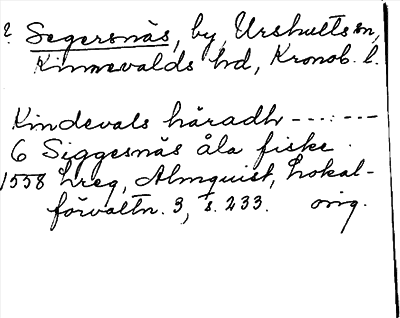 ? Segersnäs, by, Urshults sn,
Kinnevalds hd, Kronob. l.
Kindevals häradh ---:---
6 Siggesnäs åla fiske.
1558 Lreg, Almquist, Lokal-
förvaltn. 3, s. 233. orig.